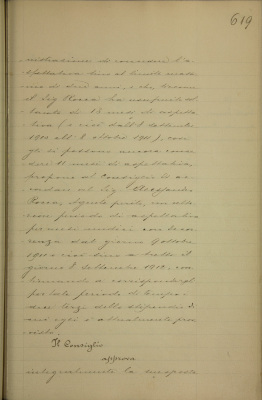 619
aspettativa sino al limite mass
mo di due anni, e che
il Sig. Rossa ha usufruito sol
tanto di 13 mesi di aspetta
tiva (e cioè dall' 8 settembre
1900 all' 8 ottobre 1901), con
gli si possono ancora conce
dere 11 mesi di aspettativa,
propone al Consiglio di ac
cordare al Sig. Alessandro
Rossa, signolo perito, un ulte
riore periodo di aspettativa
per mesi undici con decor
renza dal giorno 9 ottobre
1901 e cioè sino a tutto il
giorno 8 settembre 1902, con
tinuando a corrispondergli
per tale periodo di tempo i
due terzi dello stipendio di
cui egli è attualmente prov
visto.
Il Consiglio
approva
integralmente la proposta